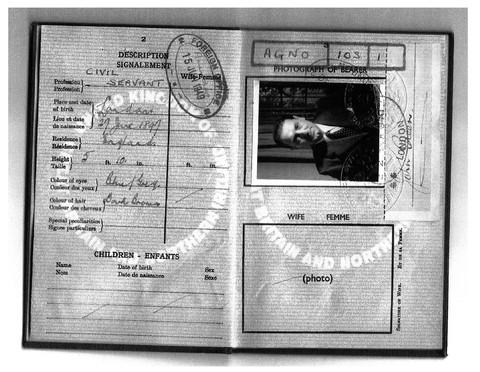 2
DESCRIPTION
SIGNALEMENT
Wife-Femme
CIVIL
Profession SERVANT
Profession
Place and date
of birth London
Lieu et date
de naissance June
Residence
Résidence England
Height 5 ft. 10 in. ft. in.
Taille
Colour of eyes
Couleur des yeux
Colour of hair Dark Brown
Couleur des cheveux
Special peculiarities
Signes particuliers
CHILDREN - ENFANTS
Name Date of birth Sex
Nom Date de naissance Sexe
FOREIGN OFFICE
3
AGNO 103 1
PHOTOGRAPH OF BEARER
LONDON
WIFE FEMME
(photo)
SIGNATURE OF WIFE. ET DE SA FEMME.
BRITAIN AND NORTHERN